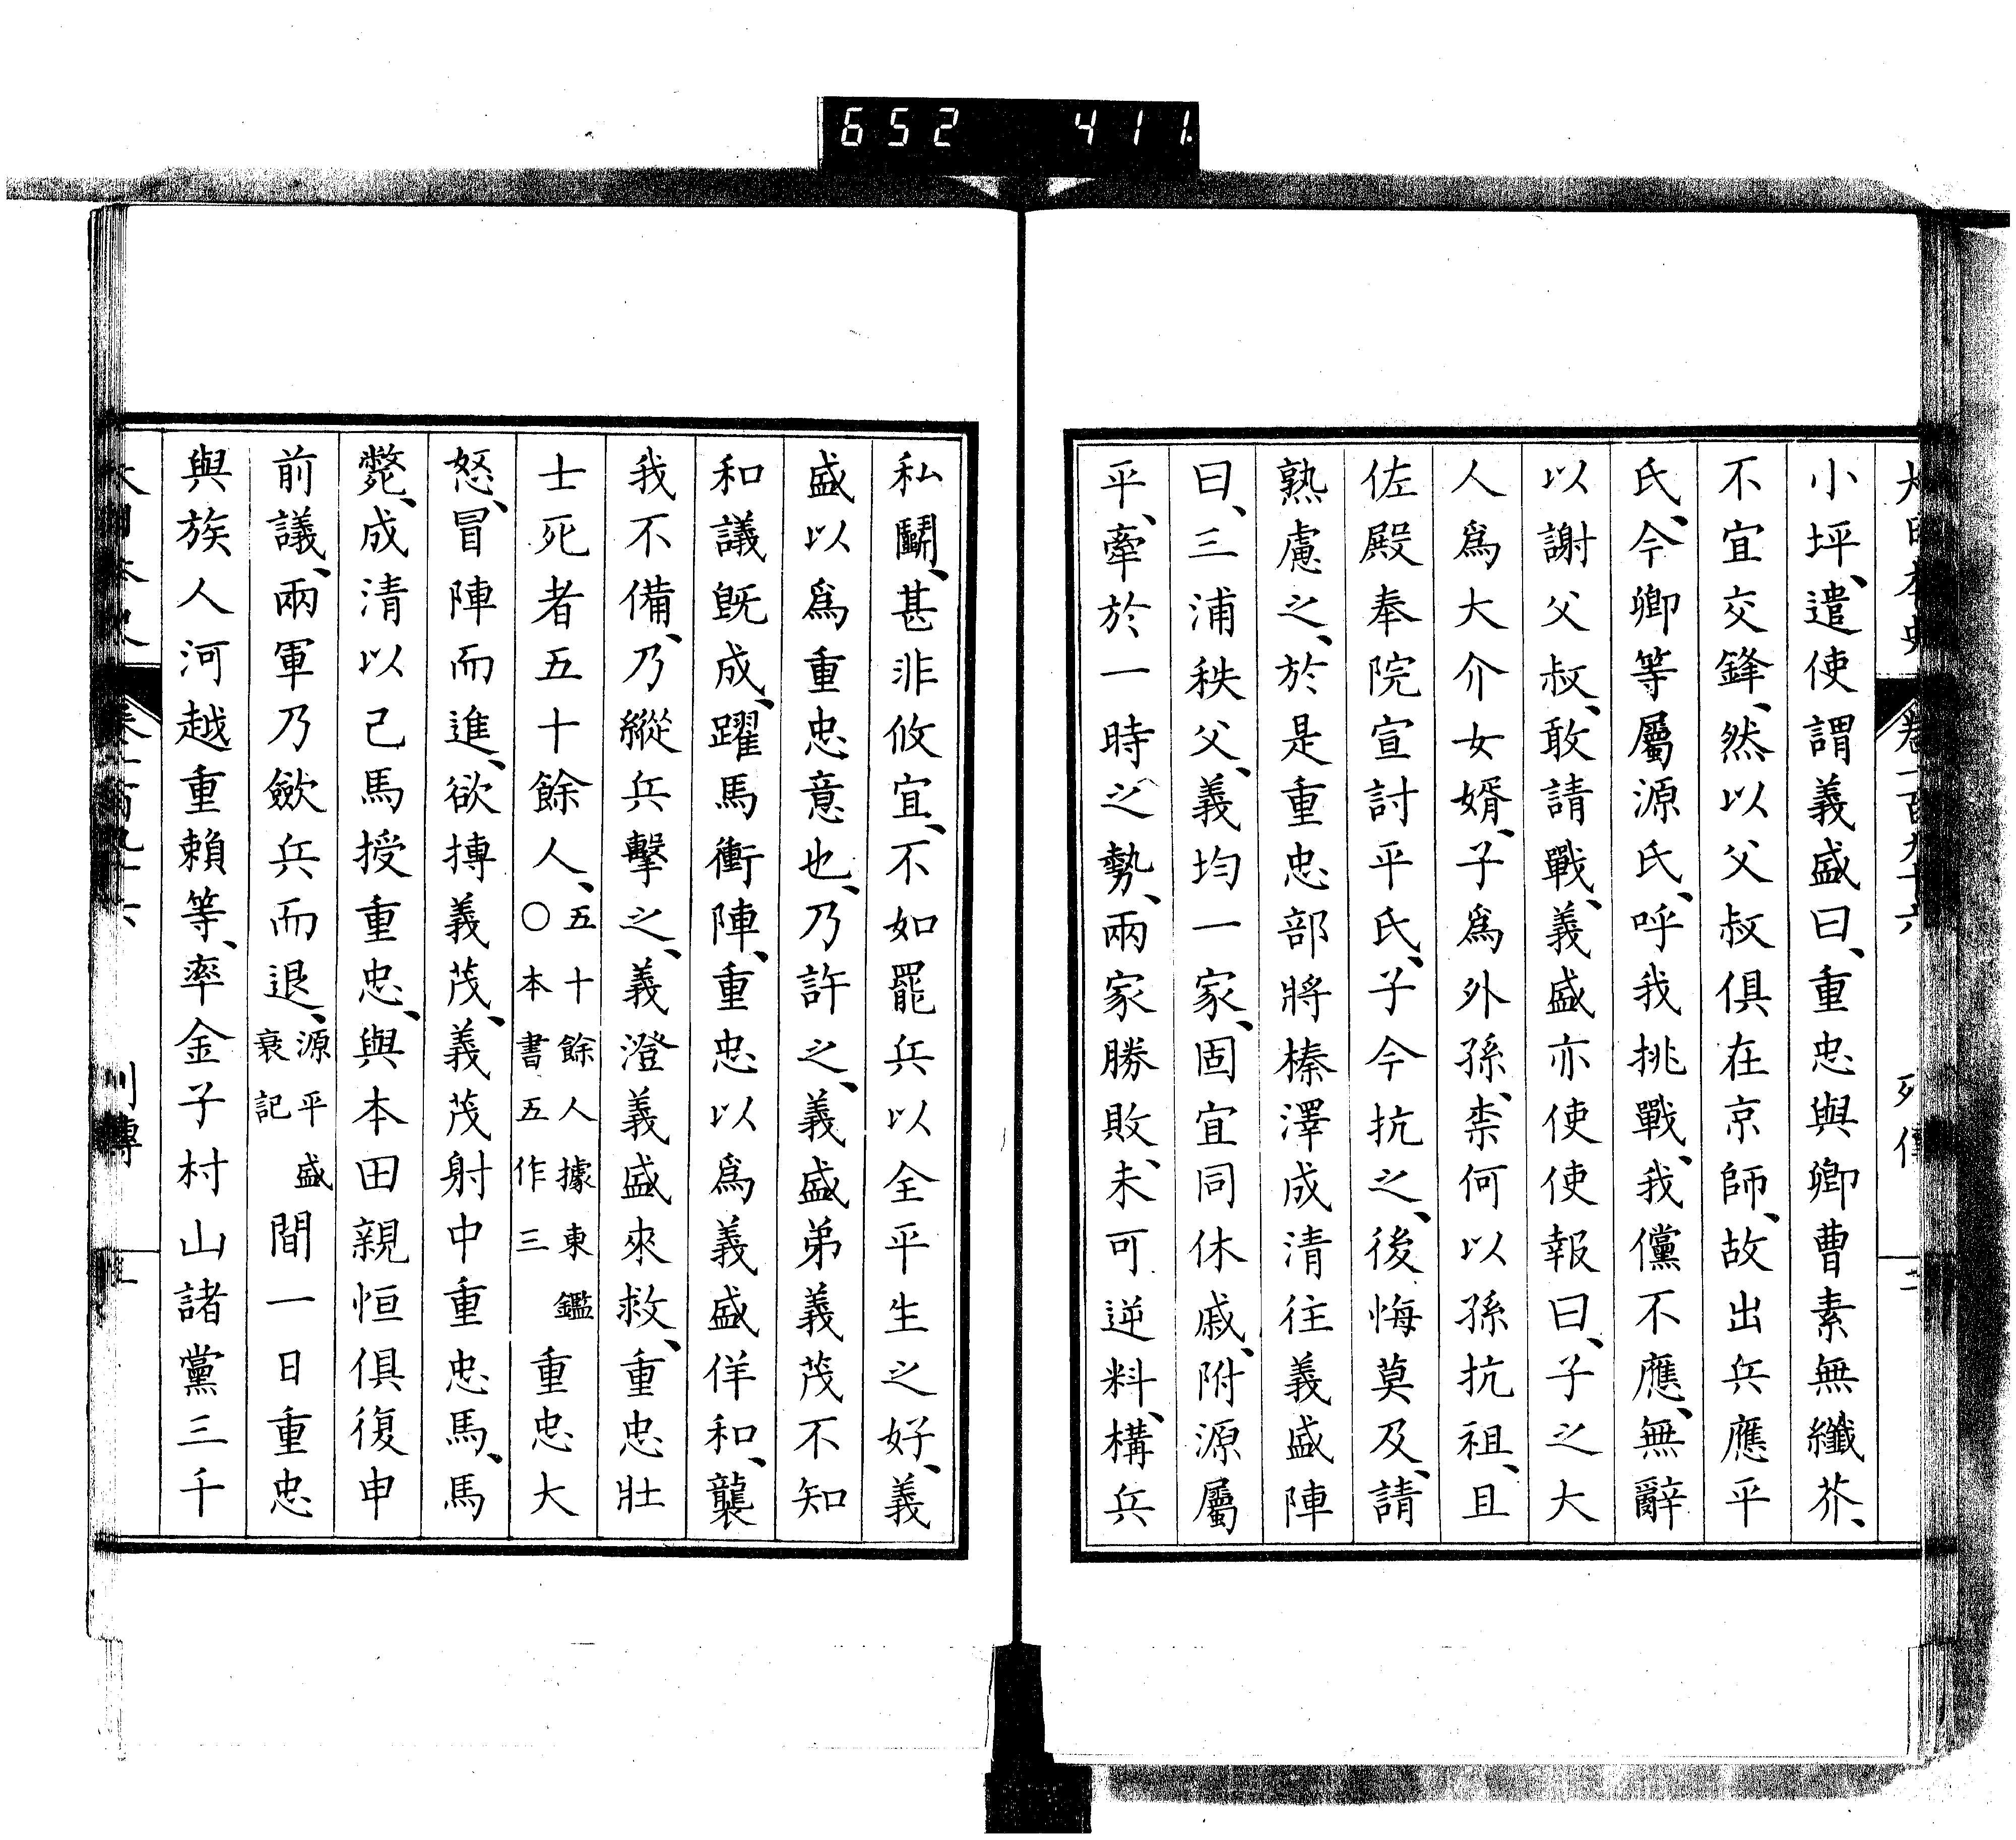 652 411
小坪、遣使謂義盛曰、重忠與卿曹素無纖芥、
不宜交鋒、然以父叔俱在京師、故出兵應平
氏、今卿等屬源氏、呼我挑戰、我儻不應、無辭
以謝父叔、敢請戰、義盛亦使使報曰、子之大
人爲大介女婿、子爲外孫、柰何以孫抗祖、且
佐殿奉院宣討平氏、子今抗之、後悔莫及、請
熟慮之、於是重忠部將榛澤成清往義盛陣
曰、三浦秩父、義均一家、固宜同休戚、附源屬
平、牽於一時之勢、兩家勝敗、未可逆料、構兵
私鬭、甚非攸宜、不如罷兵以全平生之好、義
盛以爲重忠意也、乃許之、義盛弟義茂不知
和議既成、躍馬衝陣、重忠以爲義盛佯和、襲
我不備、乃縱兵擊之、義澄義盛來救、重忠壯
士死者五十餘人、五十餘人據東鑑〇本書五作三重忠大
怒、冒陣而進、欲搏義茂、義茂射中重忠馬、馬
斃、成清以己馬授重忠、與本田親恒俱復申
前議、兩軍乃斂兵而退、源平盛衰記間一日重忠
與族人河越重賴等、率金子村山諸黨三千